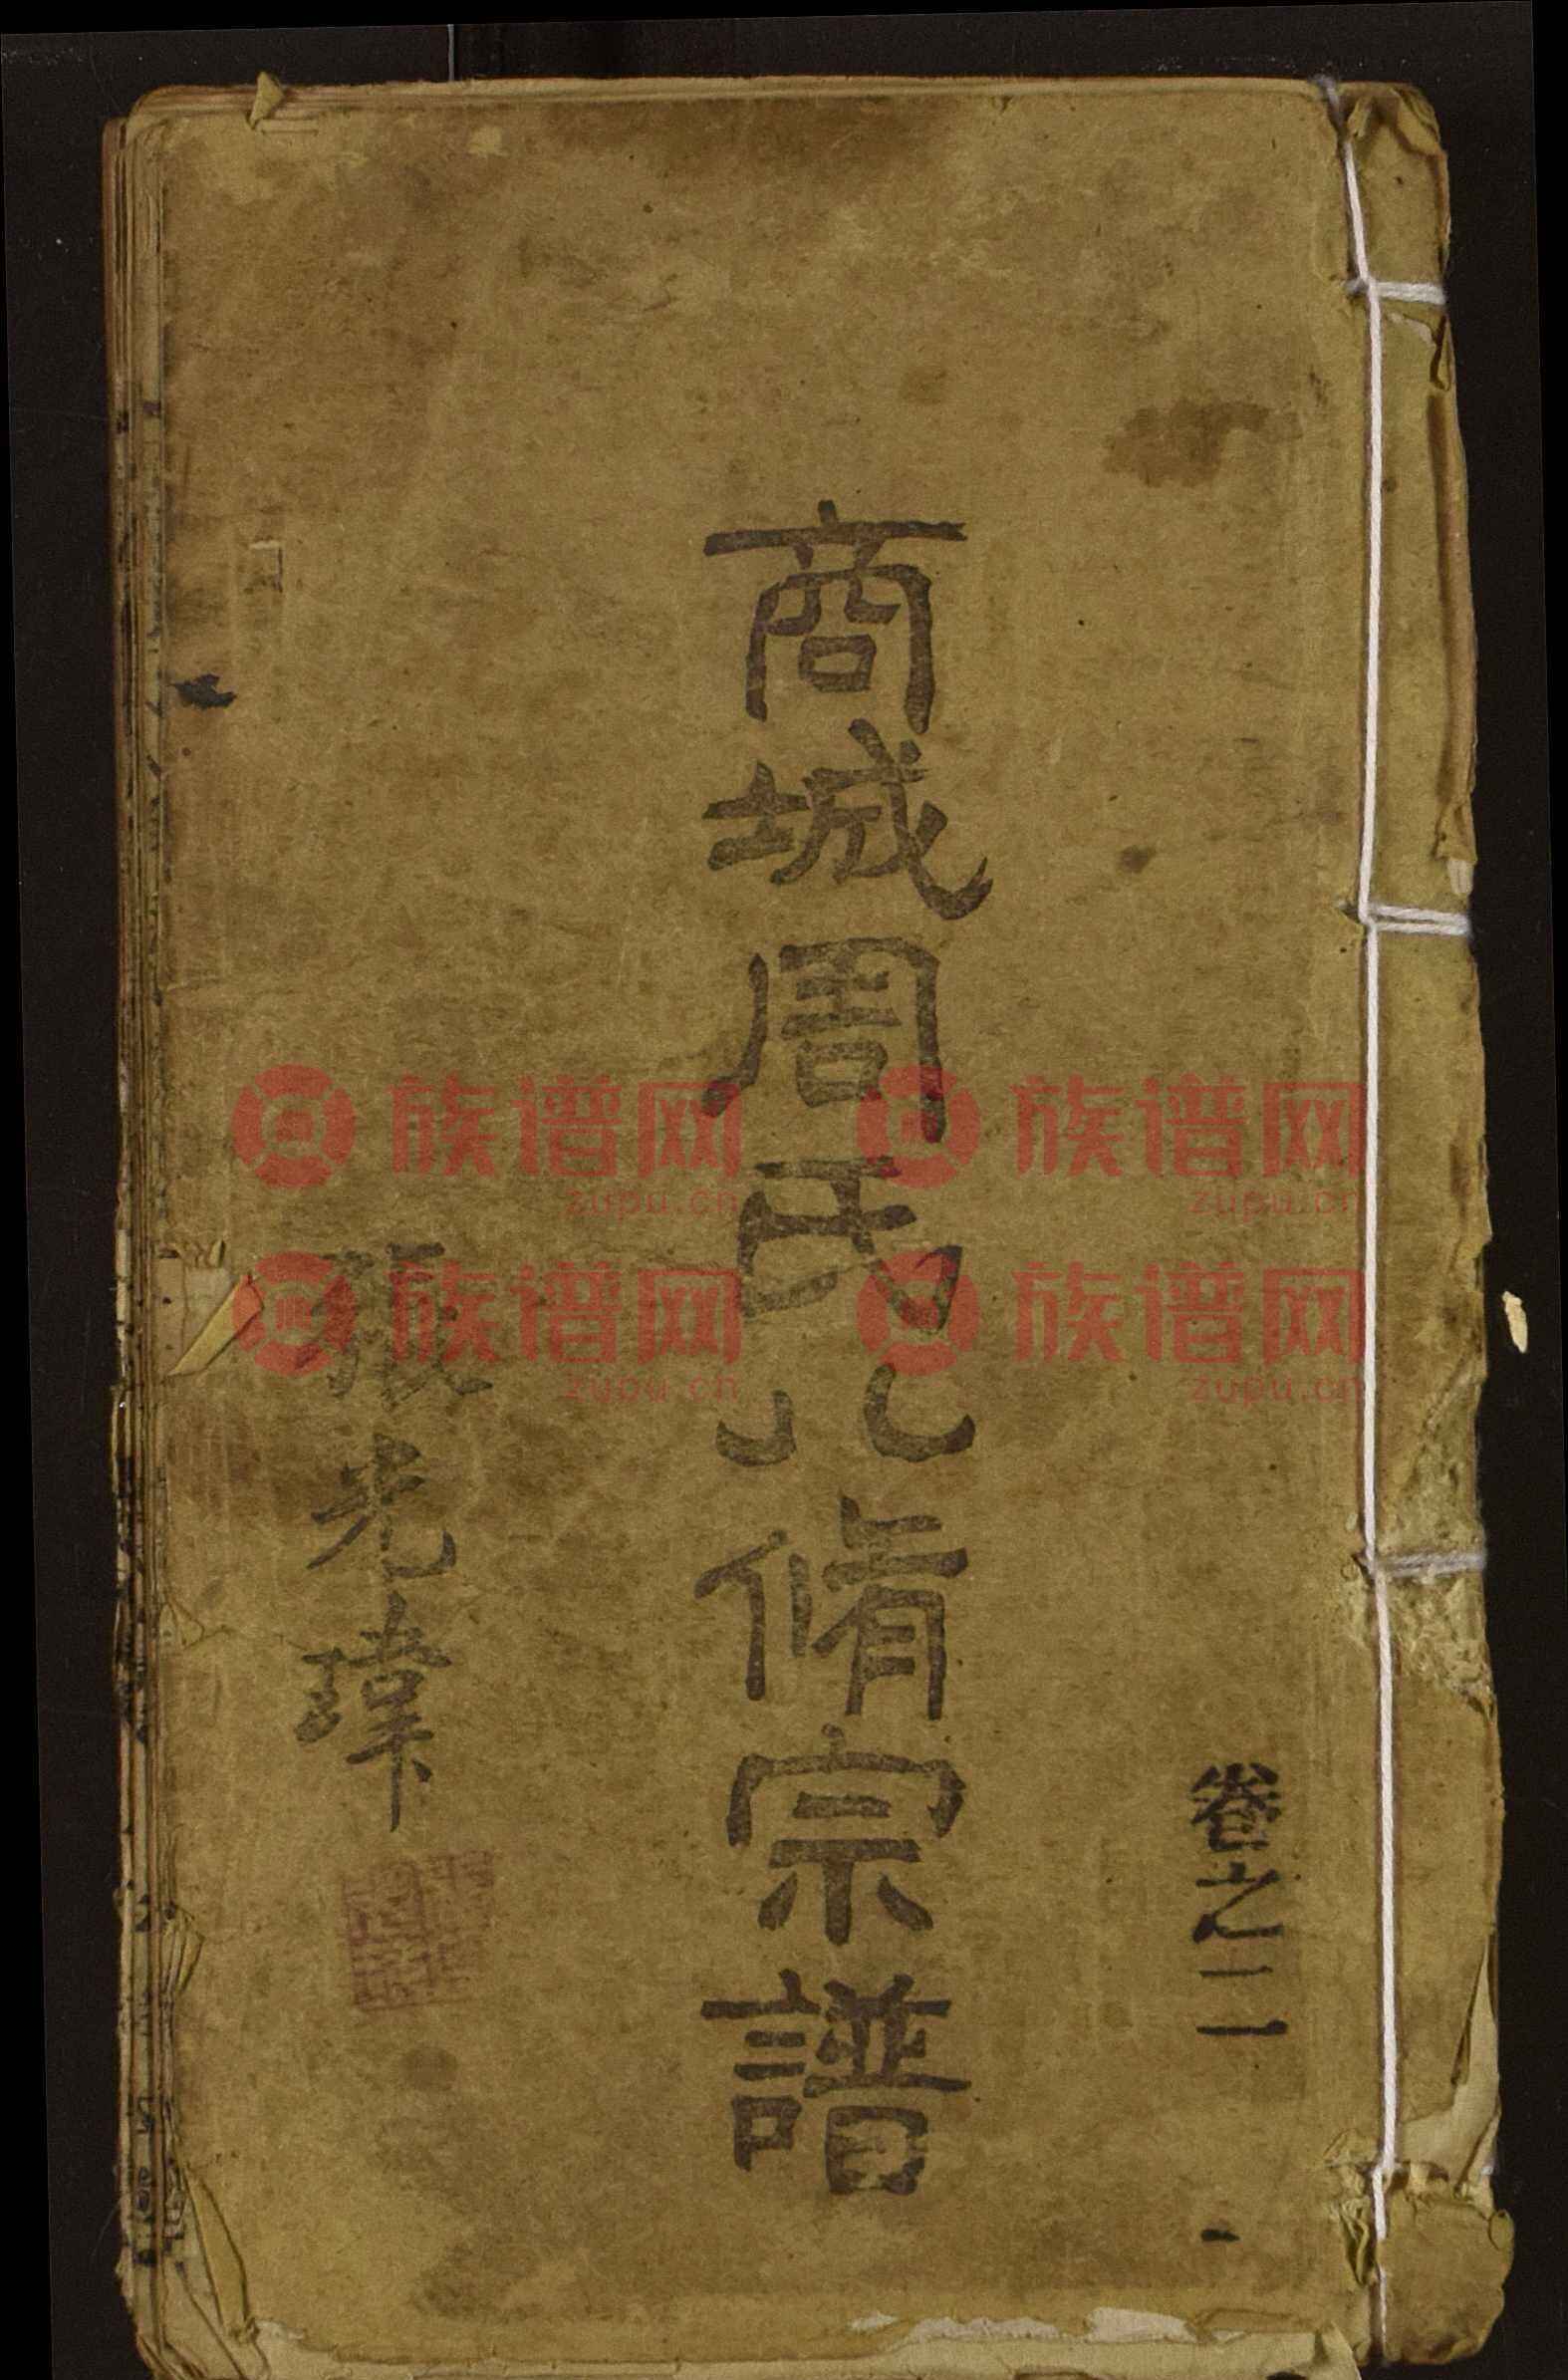 卷之二
商城周氏八脩宗譜
張光瑋
族谱网
zupu.cn
族谱网
zupu.cn
族谱网
zupu.cn
族谱网
zupu.cn